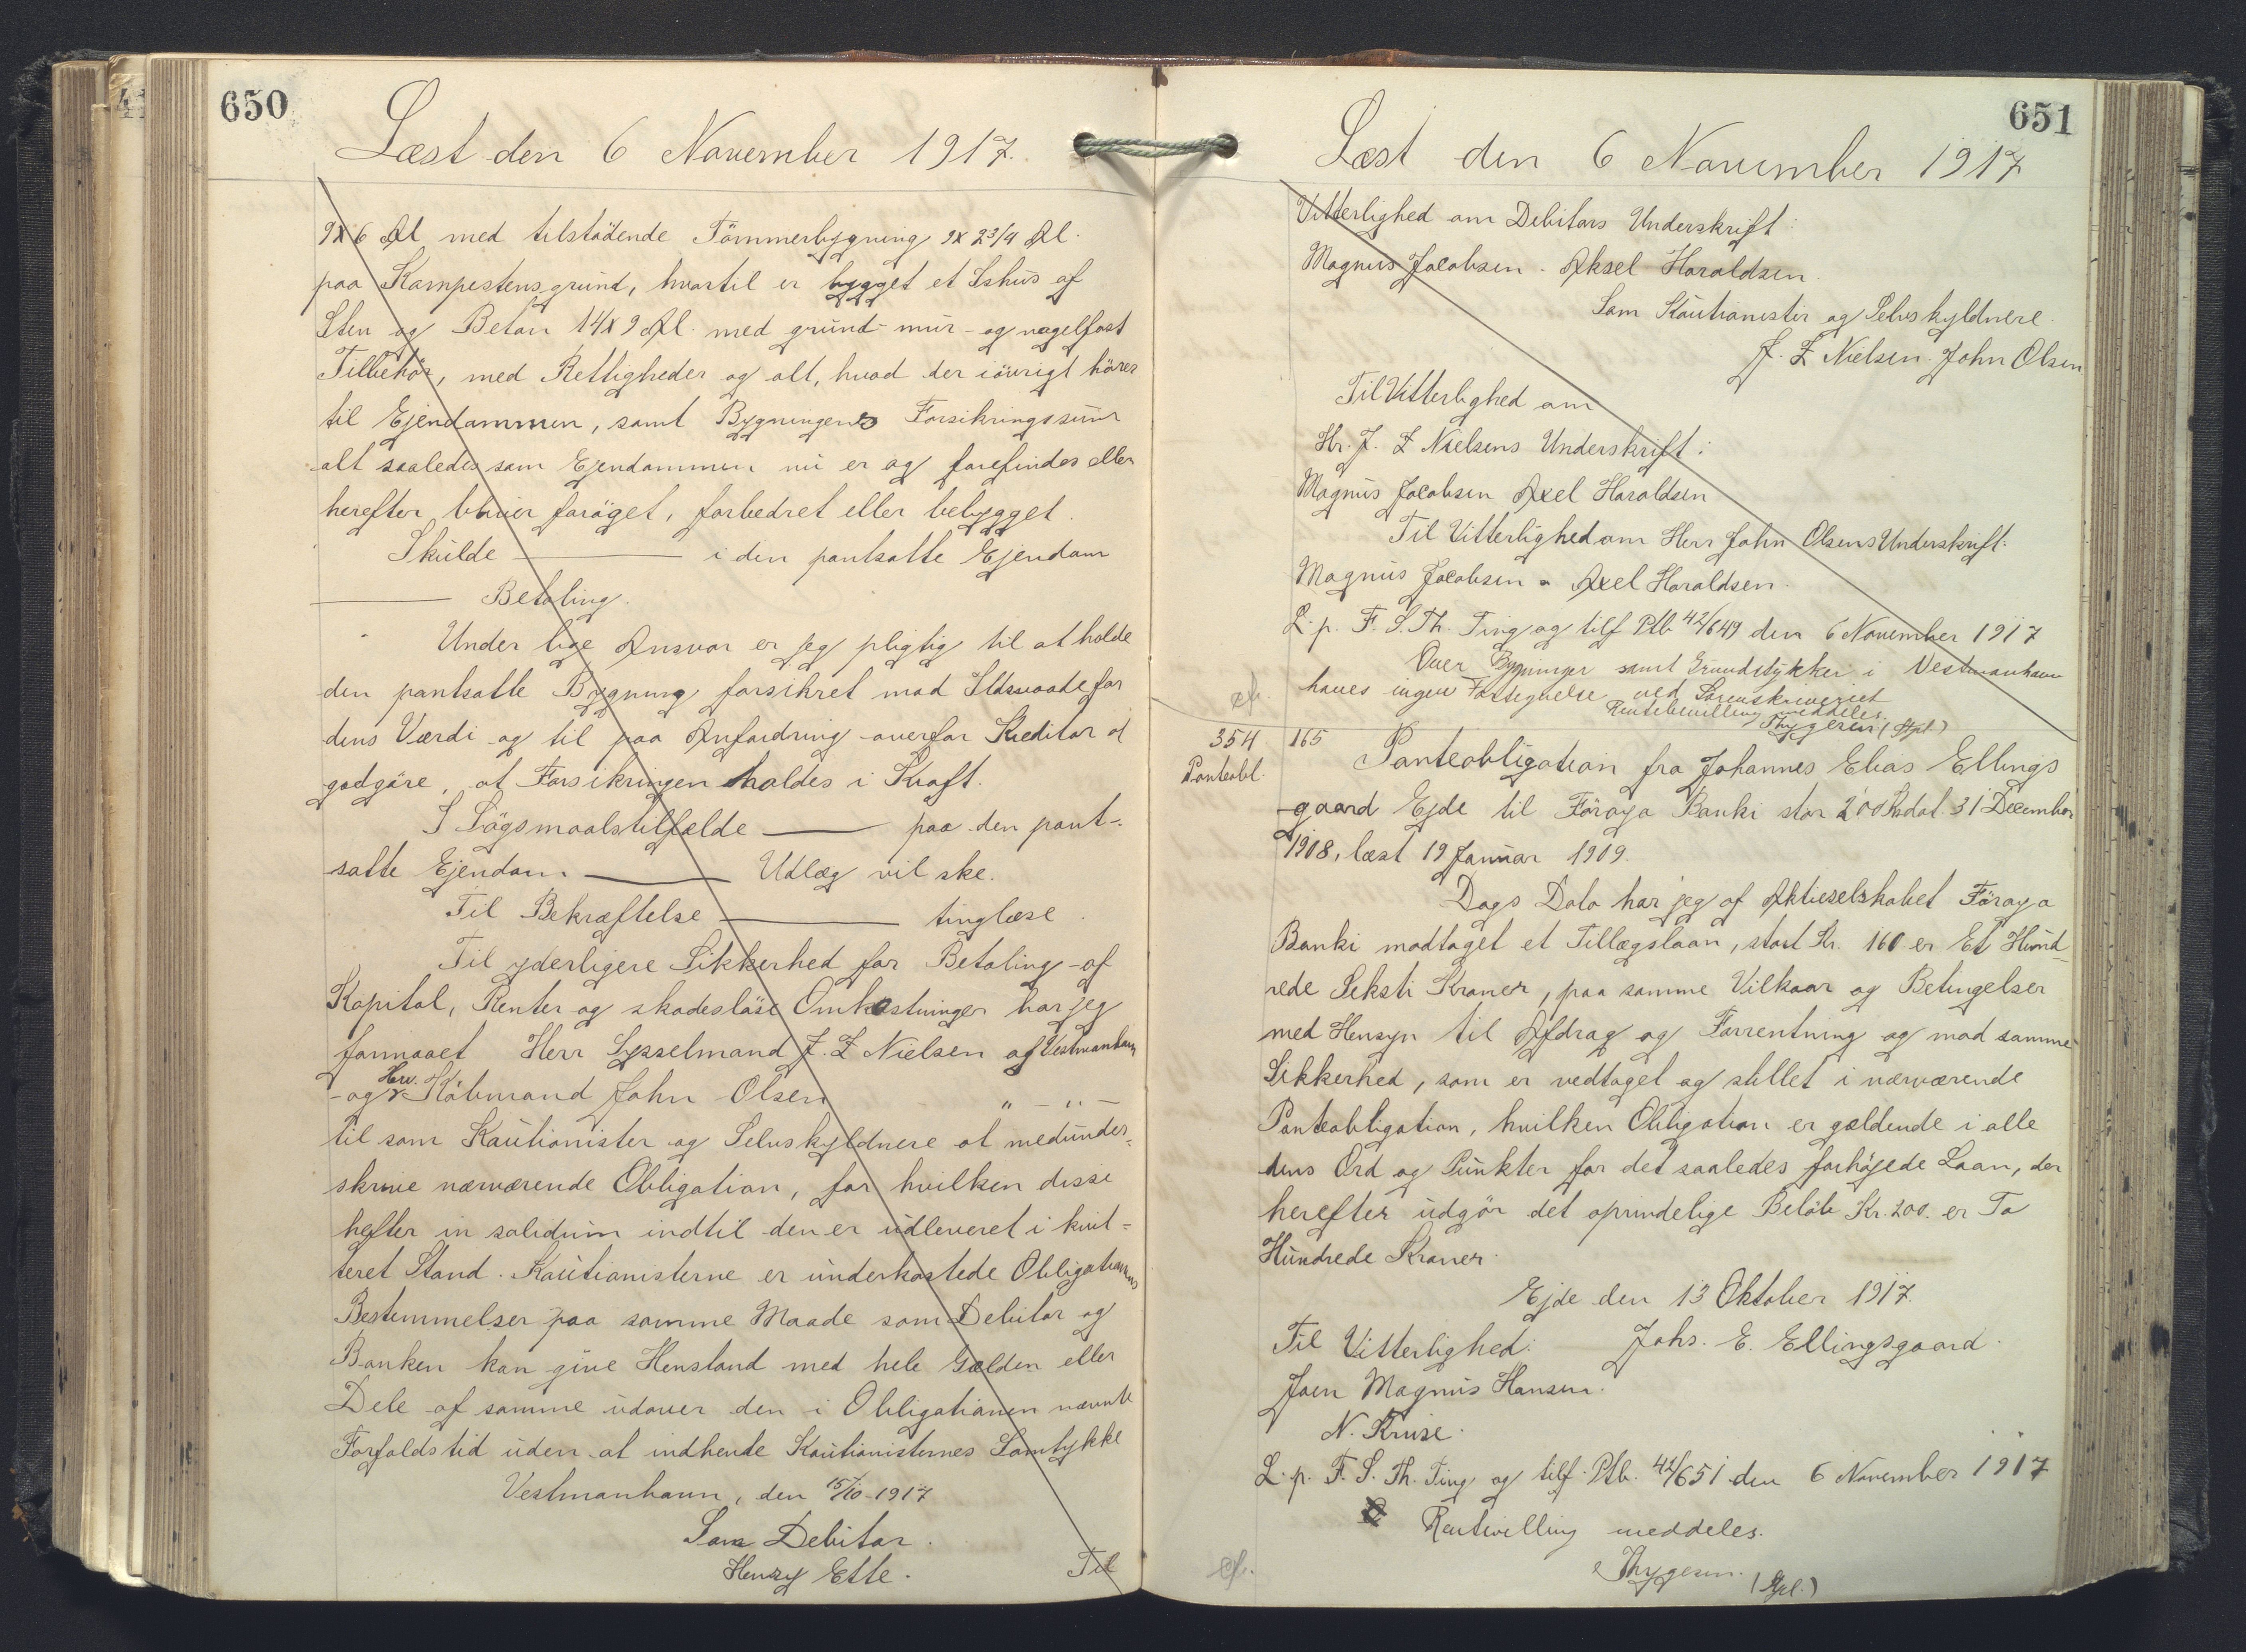 650
Læst den 6 November 1917.
9x6 Al med tilstödende Tömmerbygning 9x2 3/4 Al.
paa Kampestensgrund, hvortil er bygget et Ishus af
Sten og Beton 14x9 Al. med grund- mur- og nagelfast
Tilbehör, med Rettigheder og alt, hvad der iövrigt hörer
til Ejendommen, samt Bygningens Forsikringssum
alt saaledes som Ejendommen nu er og forefindes eller
herefter bliver foröget, forbedret eller bebygget.
Skulde ——— i den pantsatte Ejendom
——— Betaling.
Under lige Ansvar er jeg pligtig til at holde
den pantsatte Bygning forsikret mod Ildsvaade for
dens Værdi og til paa Anfordring overfor Kreditor at
godgöre, at Forsikringen holdes i Kraft.
I Sögsmaalstilfælde ——— paa den pant-
satte Ejendom ——— Udlæg vil ske.
Til Bekræftelse ——— tinglæse.
Til yderligere Sikkerhed for Betaling af
Kapital, Renter og skadeslöse Omkostninger har jeg
formaaet Herr Sysselmand J. Z Nielsen af Vestmanhavn
og Herr. Köbmand John Olsen " — " —
til som Kautionister og Selvskyldnere at medunder-
skrive nærværende Obligation, for hvilken disse
hefter in solidum indtil den er udleveret i kvit-
teret Stand. Kautionisterne er underkastede Obligationens
Bestemmelser paa samme Maade som Debitor og
Banken kan give Henstand med hele Gælden eller
Dele af samme udover den i Obligationen nævnte
Forfaldstid uden at indhente Kautionisternes Samtykke
Vestmanhavn, den 15/10-1917
Som Debitor.
Henry Ette.
Til
651
Læst den 6 November 1917
Vitterlighed om Debitors Underskrift:
Magnus Jacobsen. Aksel Haraldsen.
Som Kautionister og Selvskyldnere.
J. Z Nielsen. John Olsen
Til Vitterlighed om
Hr. J. Z Nielsens Underskrift:
Magnus Jacobsen Axel Haraldsen
Til Vitterlighed om Herr John Olsens Underskrift:
Magnus Jacobsen - Axel Haraldsen.
L. p. F. S. Th. Ting og tilf Ptb 42/649 den 6 November 1917
Over Bygninger samt Grundstykker i Vestmanhavn
haves ingen Fortegnelse ved Sorenskriveriet
Rentebevilling meddeles.
Thygesen (Spl.)
cf.
354 165 Panteobligation fra Johannes Elias Ellings
Panteobl.
-gaard Ejde til Föroya Banki stor 200 Kr dat. 31 December
1908, læst 19 Januar 1909.
Dags Dato har jeg af Aktieselskabet Föroya
Banki modtaget et Tillægslaan, stort Kr. 160 er Et Hund-
rede Seksti Kroner, paa samme Vilkaar og Betingelser
med Hensyn til Afdrag og Forrentning og mod samme
Sikkerhed, som er vedtaget og stillet i nærværende
Panteobligation, hvilken Obligation er gældende i alle
dens Ord og Punkter for det saaledes forhöjede Laan, der
herefter udgör det oprindelige Belöb Kr. 200. er To
Hundrede Kroner.
Ejde den 13 Oktober 1917.
Til Vitterlighed: Johs. E. Ellingsgaard.
Joen Magnus Hansen.
N. Kruse.
L. p. F. S. Th. Ting og tilf. Ptb. 42/651 den 6 November 1917
Rentevilling meddeles.
Thygesen. (Spl.)
cf.